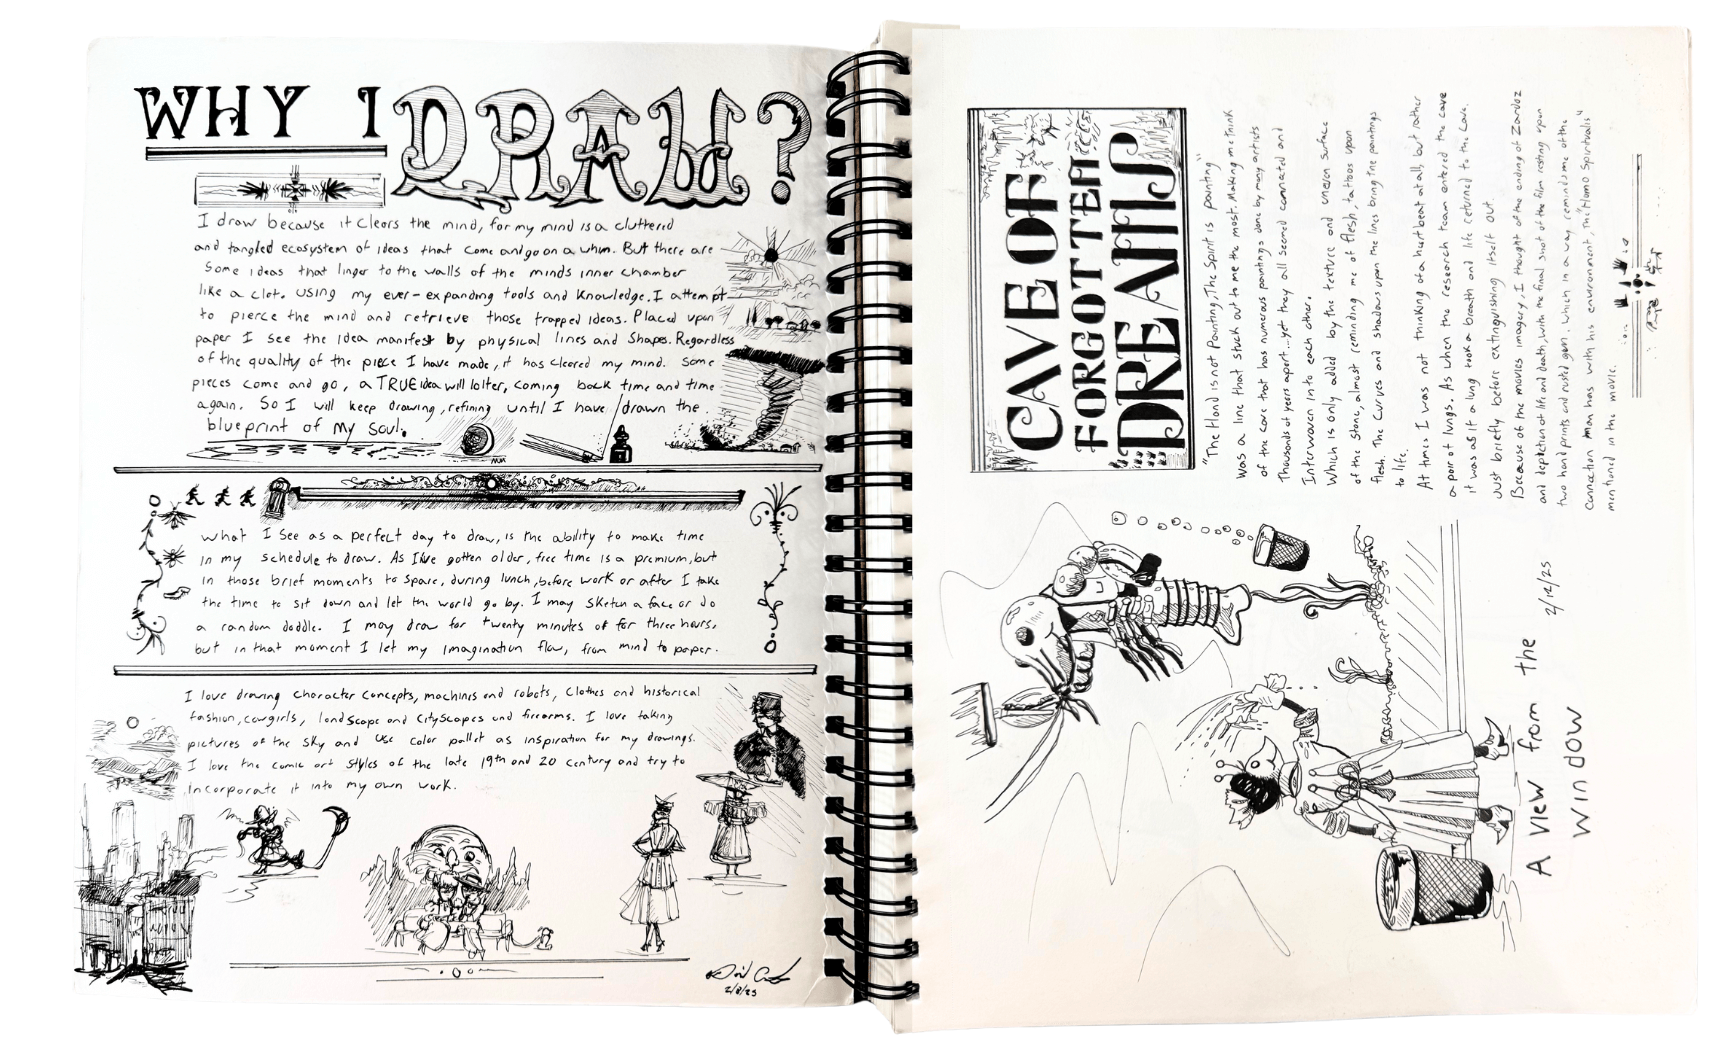 WHY I DRAW?
I draw because it clears the mind, for my mind is a cluttered
and tangled ecosystem of ideas that come and go on a whim. But there are
Some ideas that linger to the walls of the minds inner chamber
like a clot. using my ever-expanding tools and knowledge. I attempt
to pierce the mind and retrieve those trapped ideas. Placed upon
paper I see the idea manifest by physical lines and shapes. Regardless
of the quality of the piece I have made, it has cleared my mind. Some
pieces come and go, a TRUE idea will loiter, coming back time and time
again. So I will keep drawing, refining until I have drawn the
blueprint of my soul.
What I see as a perfect day to draw, is the ability to make time
in my schedule to draw. As I've gotten older, free time is a premium, but
in those brief moments to spare, during lunch, before work or after I take
the time to sit down and let the world go by. I may sketch a face or do
a random doddle. I may draw for twenty minutes of for three hours,
but in that moment I let my imagination flow, from mind to paper.
I love drawing character concepts, machines and robots, clothes and historical
fashion, cowgirls, landscape and cityscapes and firearms. I love taking
pictures of the sky and use color pallet as inspiration for my drawings.
I love the comic art styles of the late 19th and 20 century and try to
incorporate it into my own work.
2/8/25
CAVE OF
FORGOTTEN
DREAMS
"The Hand is not Painting, The Spirit is painting"
was a line that stuck out to me the most. Making me think
of the cave that has numerous paintings done by many artists
Thousands of years apart...yet they all seemed connected and
Interwoven into each other.
Which is only added by the texture and uneven surface
of the stone, almost reminding me of flesh, tattoos upon
flesh. The Curves and shadows upon the lines bring the paintings
to life.
At times I was not thinking of a heart beat at all, but rather
a pair of lungs. As when the research team entered the cave
it was as if a lung took a breath and life returned to the cave.
Just briefly before extinguishing itself out.
Because of the movies imagery, I thought of the ending of Zardoz
and depiction of life and death, with the final shot of the film resting upon
two hand prints and rusted gun. Which in a way reminds me of the
Connection man has with his environment, The "Homo Spiritualis"
mentioned in the movie.
A view from the 2/12/25
window